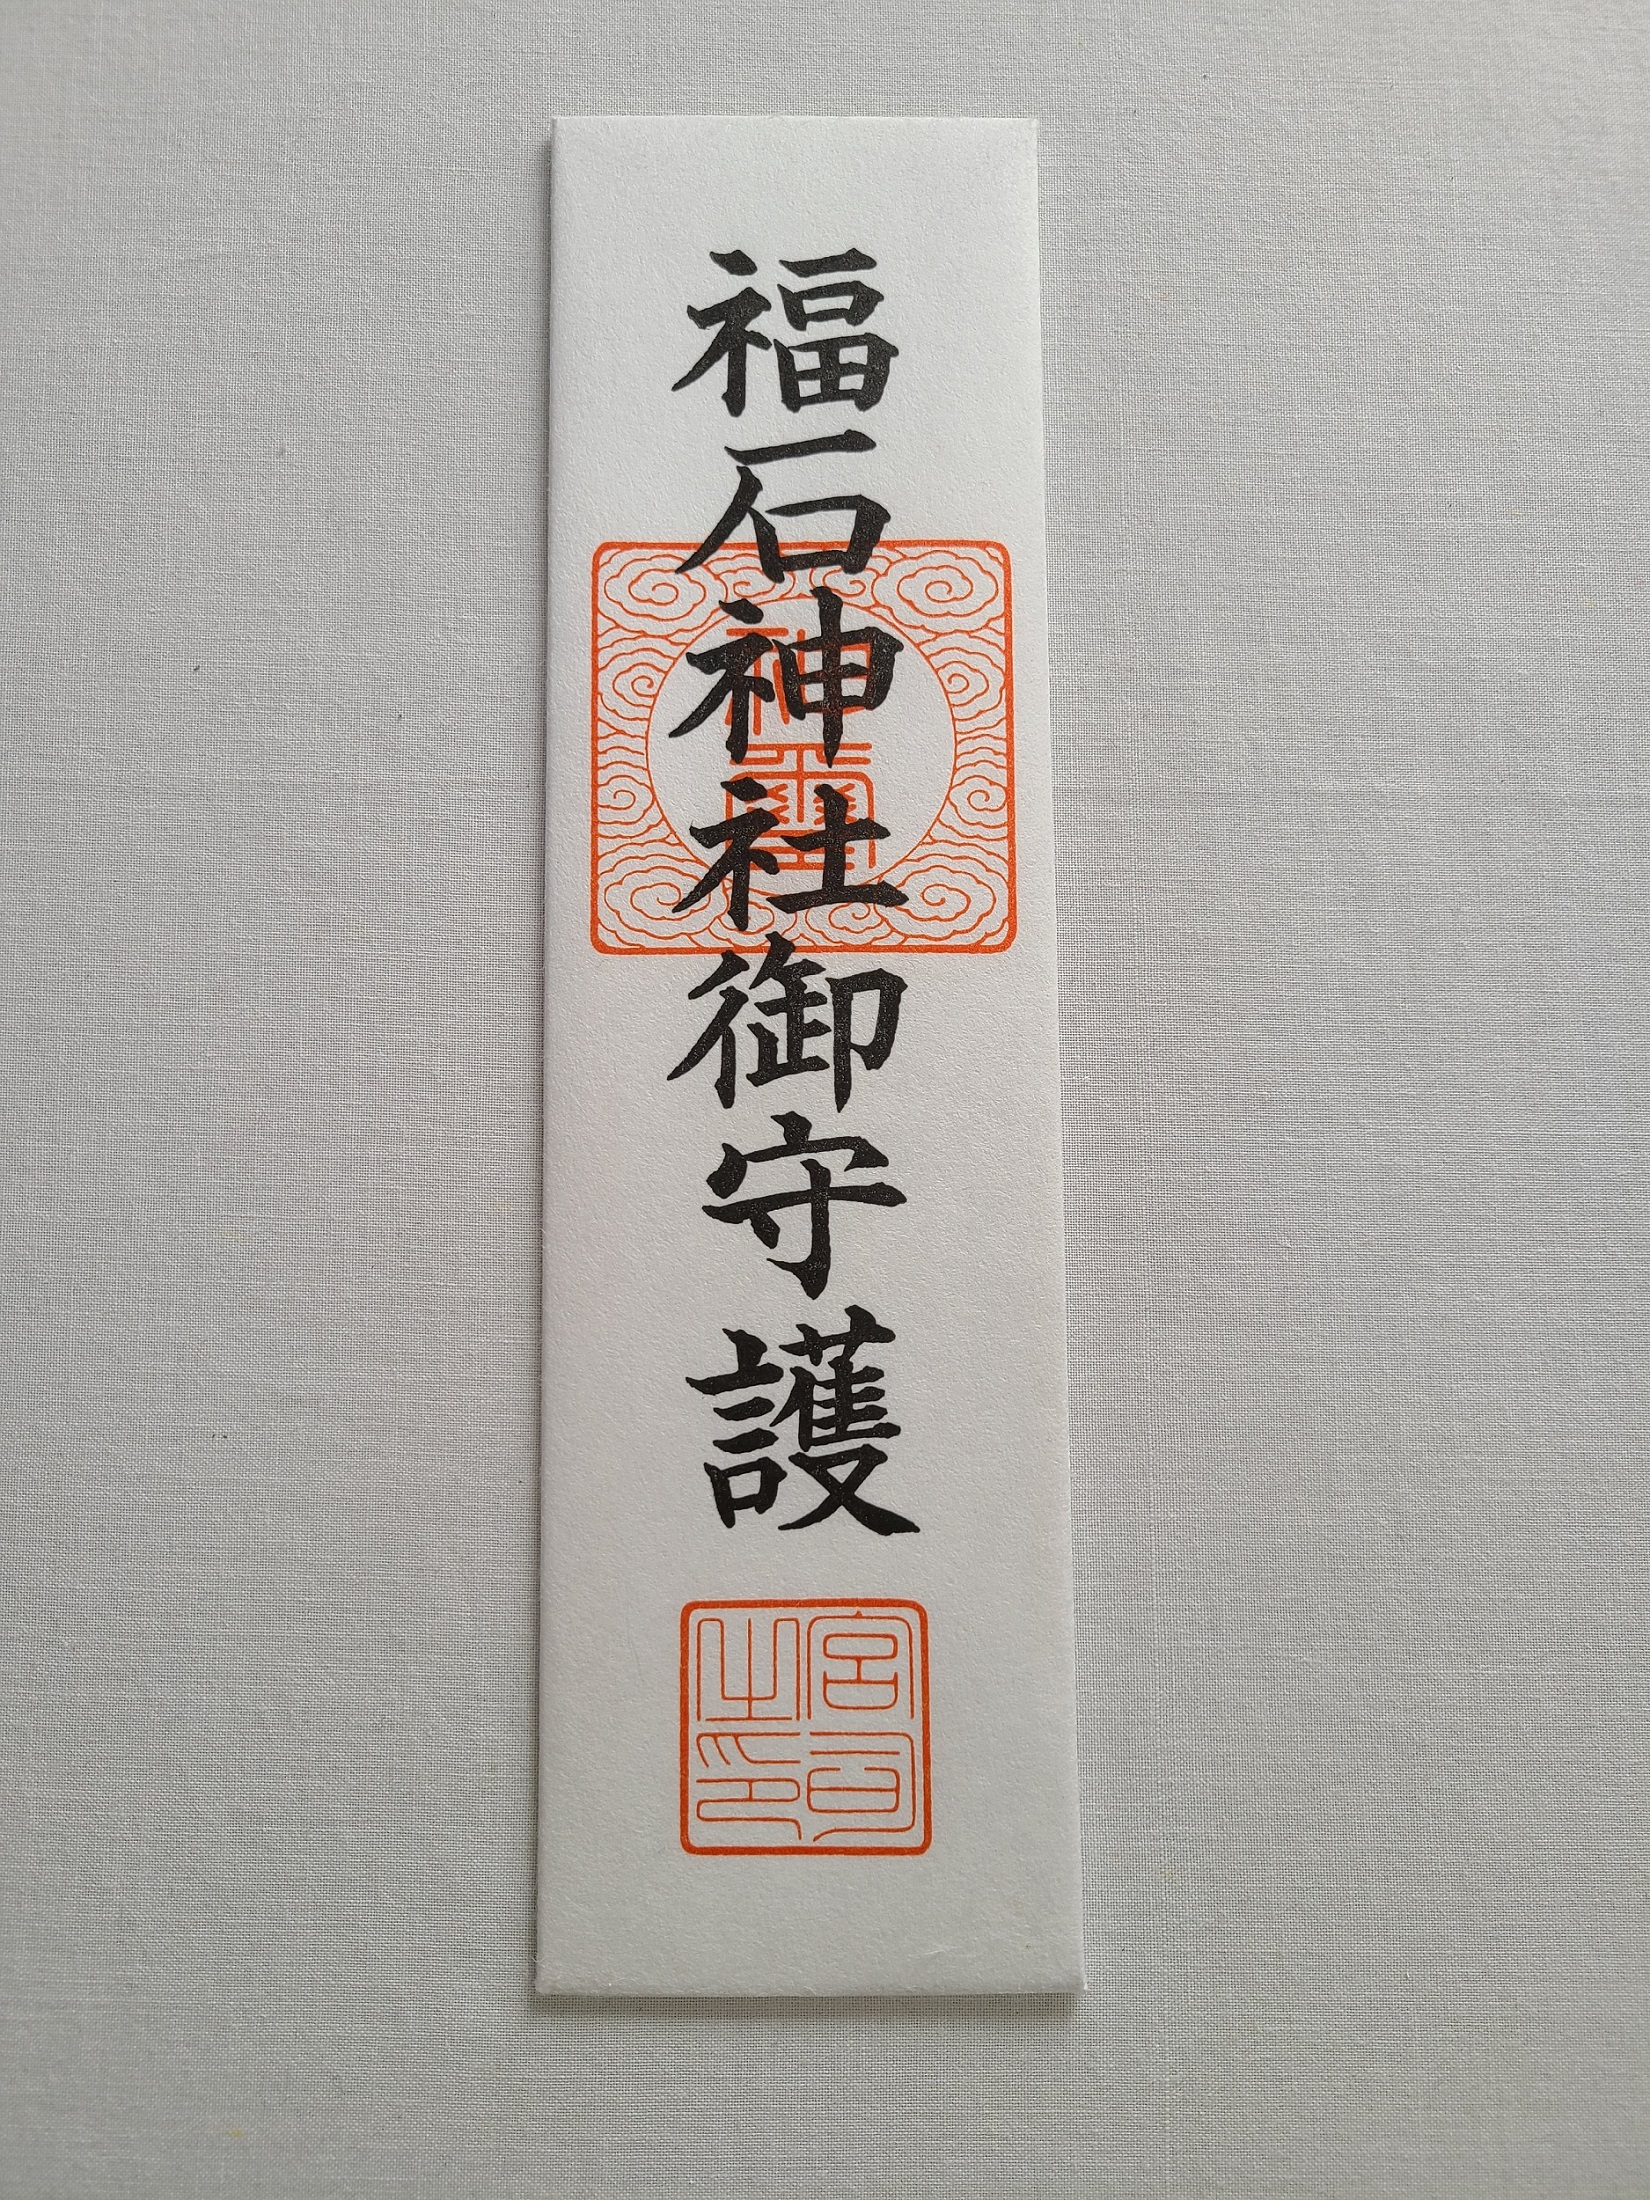 福石神社御守護
神璽
宮司之印